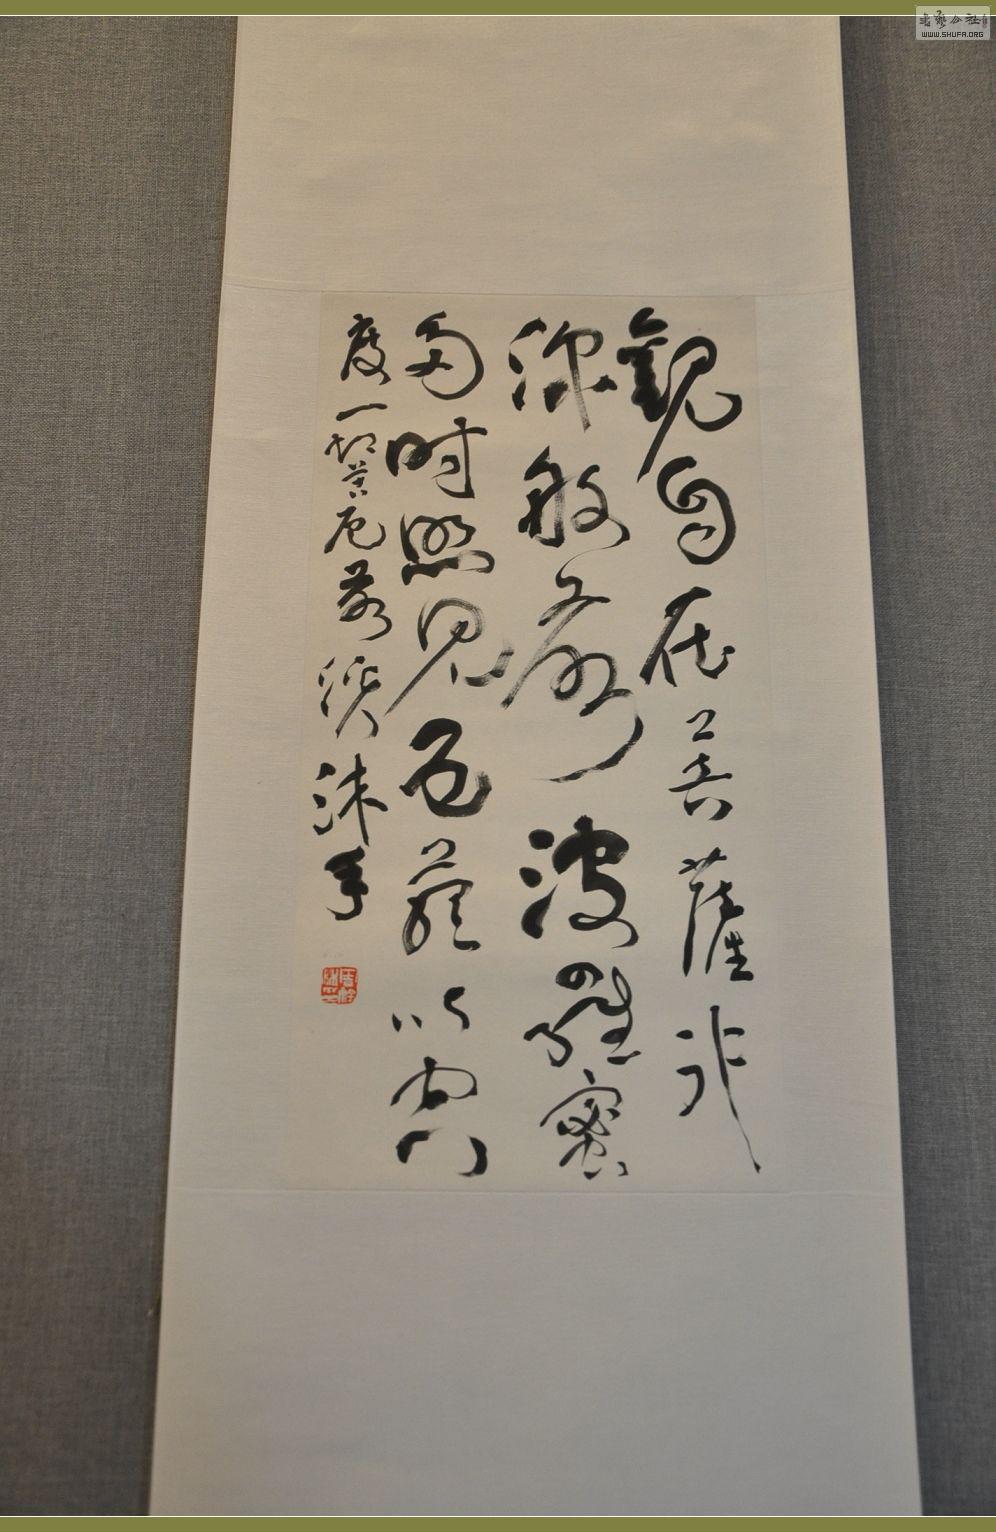 觀自在菩薩行
深般若波羅蜜
多時照見五蘊皆空
度一切苦厄 沐手
WWW.SHUFA.ORG